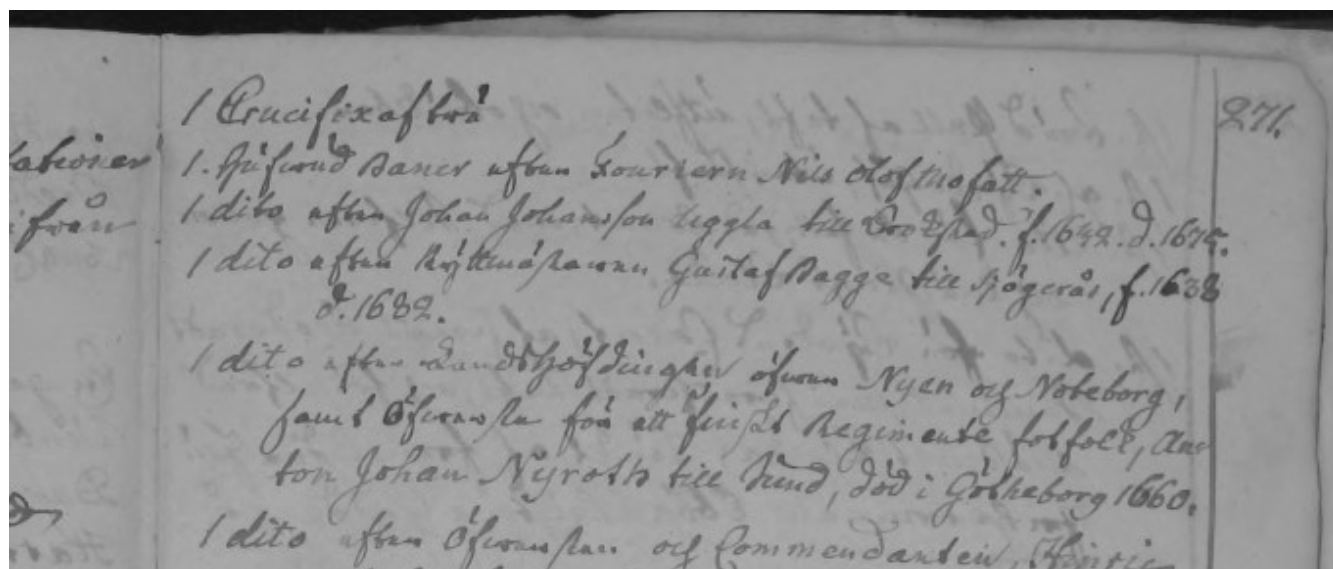 1 Crucifix af trä 271.
1. Hufwud Baner efter Fouriern Nils Olof Mofatt.
1 dito efter Johan Johansson Uggla till f. 1642. d. 1675.
1 dito efter Ryttmästaren Gustaf Bagge till Sjögerås, f. 1638
d. 1682.
1 dito efter Landshöfdingen öfwer Nyen och Noteborg,
samt Öfwerste för ett finskt Regimente fotfolck, An
ton Johan Nyroth till Sund, död i Götheborg 1660.
1 dito efter Öfwersten och Commendanten, Hinric
ationer
ifrån